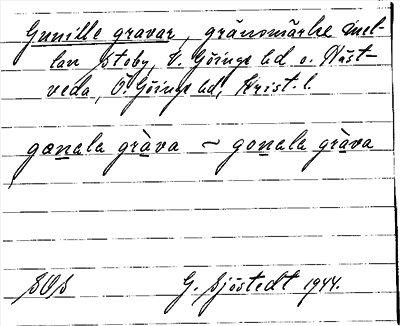 Gunille gravar, gränsmärke mel-
lan Stoby, V. Göinge hd o. Häst-
veda, Ö. Göinge hd, Krist. l.
gønala gràva ~ gonala gràva
SOS G. Sjöstedt 1944.